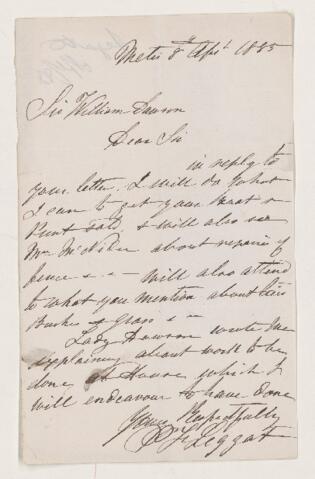 Metis 8th April 1885
Sir William Dawson
Dear Sir
in reply to
your letter. I will do what
I can to get your boat &
Punt sold, & will also see
Mr McNider about repairs of
fence & - - will also attend
to what you mention about
& Grass & -
Lady Dawson wrote me
explaining about work to be
done at House which I
will endeavour to have done
Yours Respectfully
Leggat